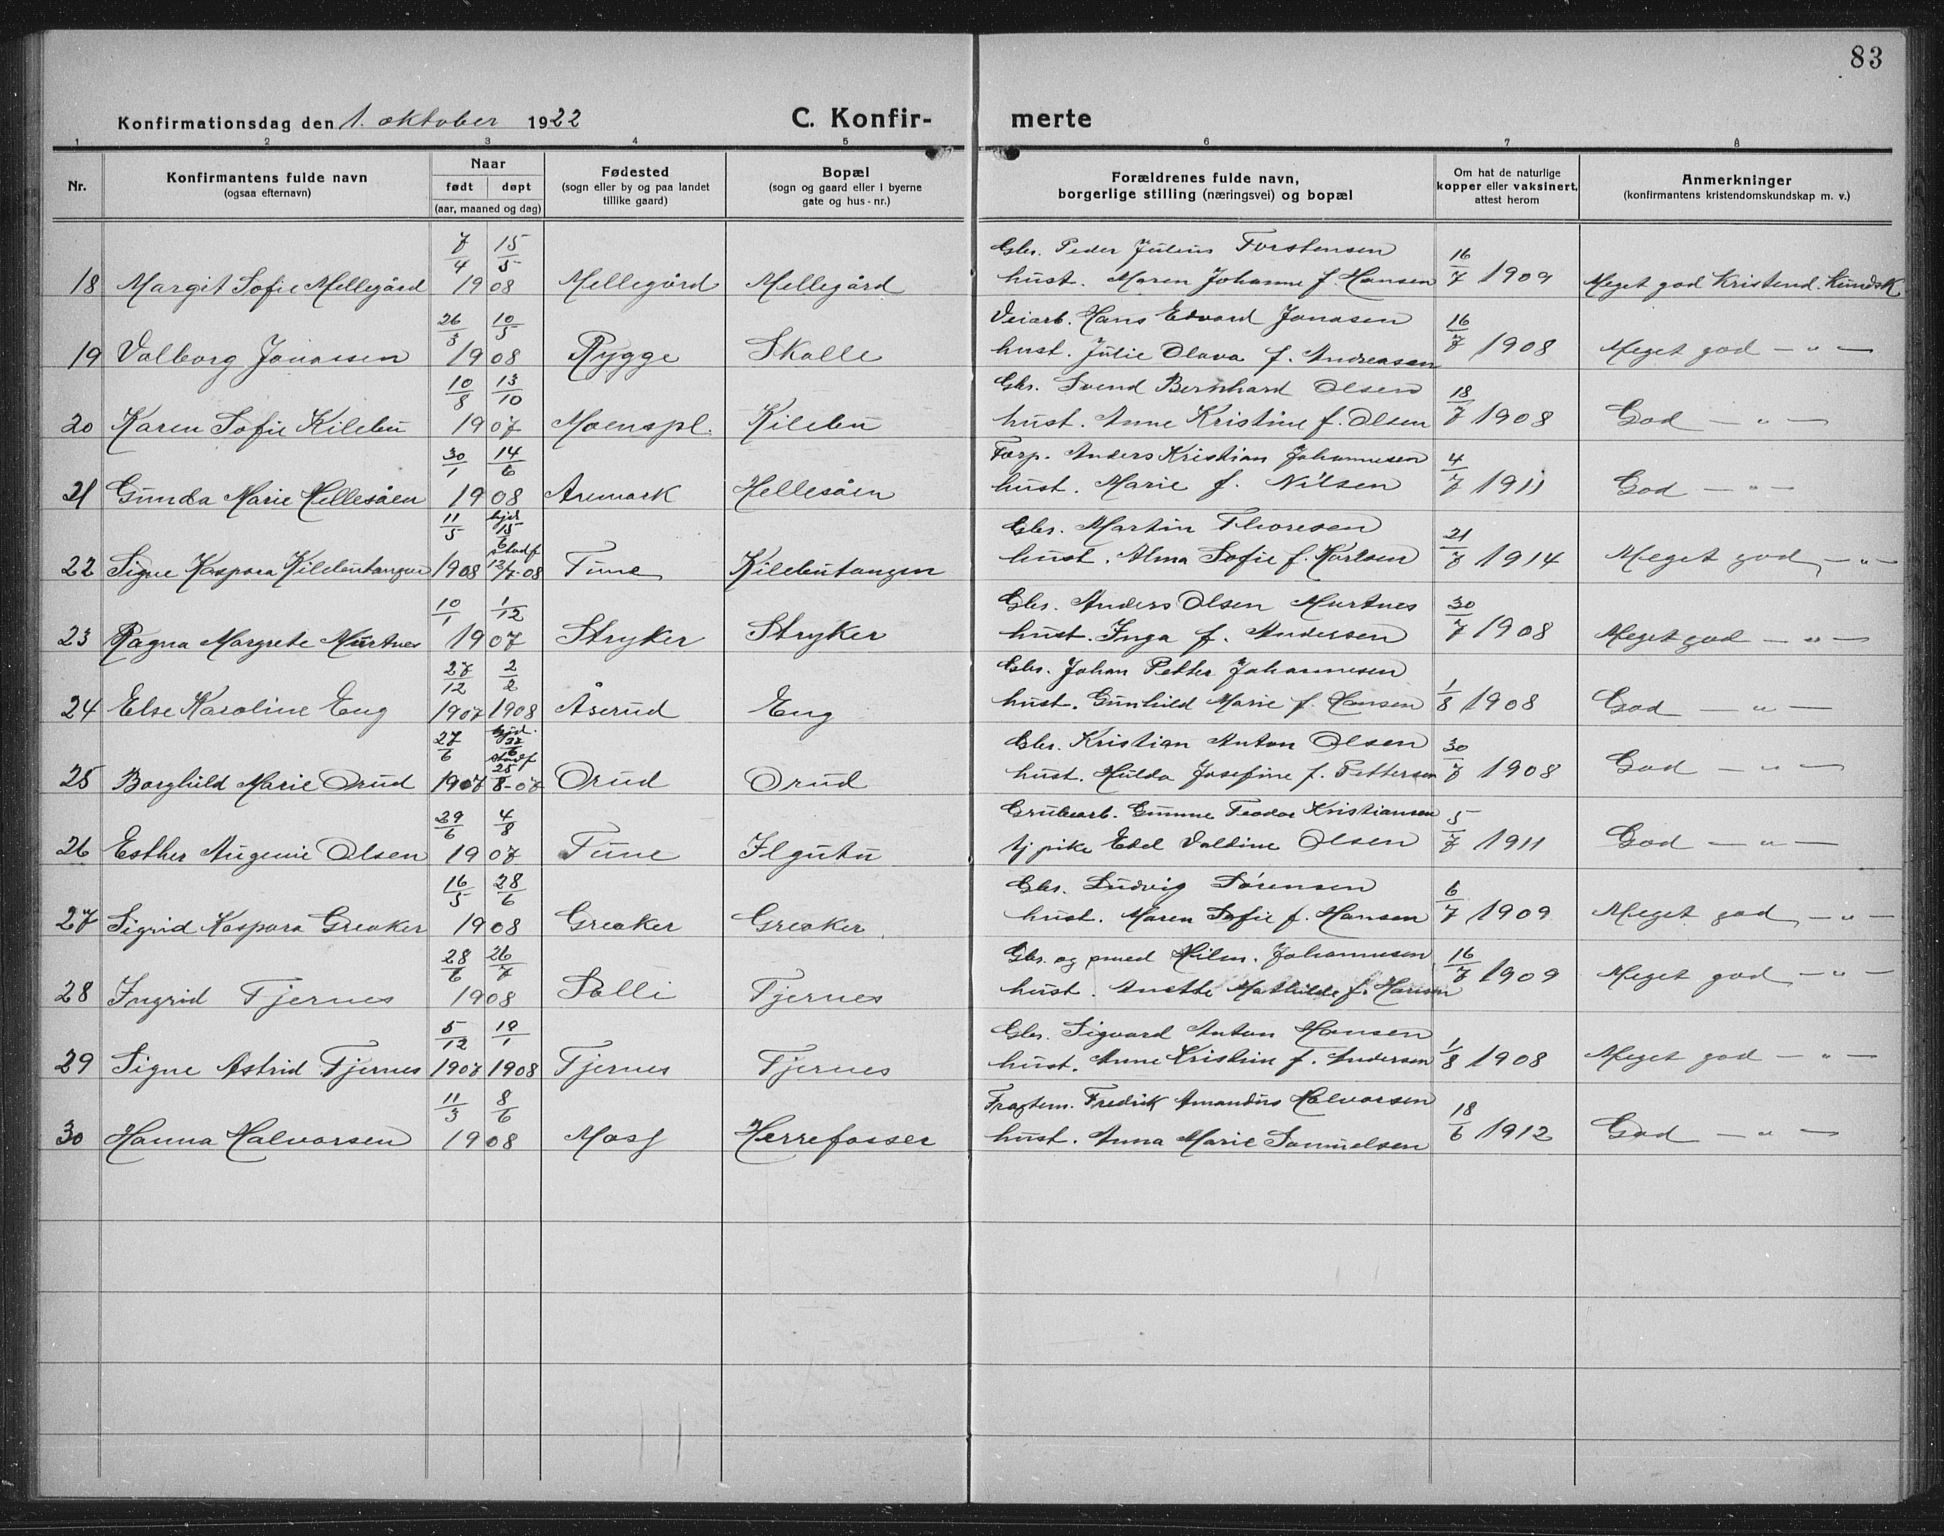 83
Konfirmationsdag den 1. oktober 1922 C. Konfir- merte
1 2 3 4 5 6 7 8
Nr. Konfirmantens fulde navn (ogsaa efternavn) Naar født døpt (aar, maaned og dag) Fødested (sogn eller by og paa landet tillike gaard) Bopæl (sogn og gaard eller i byerne gate og hus-nr.) Forældrenes fulde navn, borgerlige stilling (næringsvei) og bopæl Om hat de naturlige kopper eller vaksinert, attest herom Anmerkninger (konfirmantens kristendomskundskap m. v.)
7/4 15/5 Gbr. Peder Julius Torstensen
18 Margit Sofie Mellegård 1908 Mellegård Mellegård hust. Maren Johanne f. Hansen 16/7 1909 Meget god Kristend. Kundsk
26/3 10/5 Veiarb. Hans Edvard Jonasen
19 Valborg Jonassen 1908 Rygge Skalle hust. Julie Olava f. Andreasen 16/7 1908 Meget god — " —
10/8 13/10 Gbr. Svend Bernhard Olsen
20 Karen Sofie Kilebu 1907 Moenspl. Kilebu hust. Anne Kristine f. Olsen 18/7 1908 God — " —
30/1 14/6 Forp. Anders Kristian Johannesen
21 Gunda Marie Hellesåen 1908 Aremark Hellesåen hust. Marie f. Nilsen 4/7 1911 God — " —
11/5 hjd 15/6 Gbr. Martin Thoresen
22 Signe Kaspara Kilebutangen 1908 stadf 12/7-08 Tune Kilebutangen hust. Alma Sofie f. Karlsen 21/7 1914 Meget god — " —
10/1 1/12 Gbr. Anders Olsen Murtnes
23 Ragna Margrete Murtnes 1907 Stryker Stryker hust. Inga f. Andersen 30/7 1908 Meget god — " —
27/12 2/2 Gbr. Johan Petter Johannesen
24 Else Karoline Eng 1907 1908 Åserud Eng hust. Gunhild Marie f. Hansen 1/8 1908 God — " —
27/6 hjd. 27/6 stadf Gbr. Kristian Anton Olsen
25 Borghild Marie Orud 1907 25/8-07 Orud Orud hust. Hulda Josefine f. Pettersen 30/7 1908 God — " —
29/6 4/8 Grubearb. Gunne Teodor Kristiansen
26 Esther Augenie Olsen 1907 Tune Ilgutu tj pike Edel Valdine Olsen 5/7 1911 God — " —
16/5 28/6 Gbr. Ludvig Sørensen
27 Sigrid Kaspara Greaker 1908 Greaker Greaker hust. Maren Sofie f. Hansen 6/7 1909 Meget god — " —
28/6 26/7 Gbr. og smed Hilm. Johannesen
28 Ingrid Tjernes 1908 Solli Tjernes hust. Anette Mathilde f. Hansen 16/7 1909 Meget god — " —
5/12 19/1 Gbr. Sigvard Anton Hansen
29 Signe Astrid Tjernes 1907 1908 Tjernes Tjernes hust. Anne Kristine f. Andersen 1/8 1908 Meget god — " —
11/3 8/6 Fragtem. Fredrik Amandus Halvorsen
30 Hanna Halvorsen 1908 Moss Herrefosser hust. Anna Marie Samuelsen 18/6 1912 God — " —